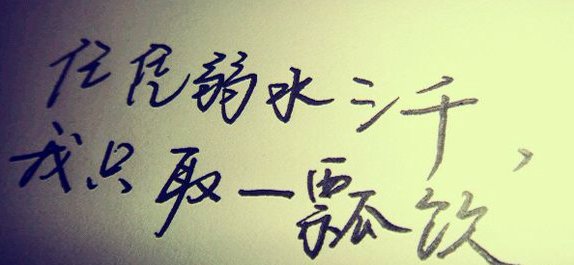 任凭弱水三千，
我只取一瓢饮